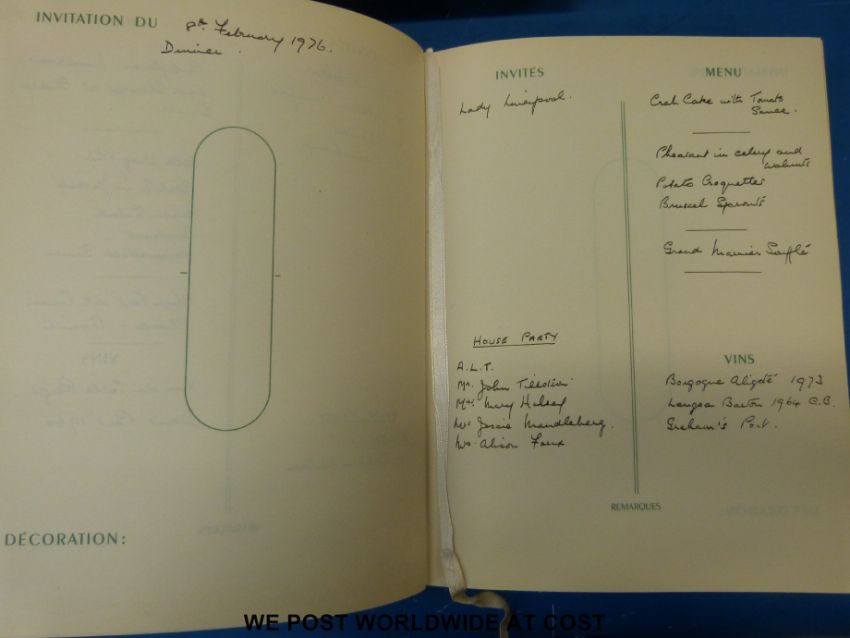 INVITATION DU
8th February 1976.
Dinner.
DÉCORATION:
INVITÉS
Lady Liverpool.
HOUSE PARTY
A.L.T.
Mr. John
Mrs. Mary Halsey
Mrs Jessie Mandleberg.
Mrs. Alison Faux
MENU
Crab Cake with Tomato
Sauce.
Pheasant in celery and
walnuts
Potato Croquettes
Brussel Sprouts
Grand Marnier Soufflé
VINS
Borgogne Aligoté 1973
Langoa Barton 1964 C.B.
Graham's Port.
REMARQUES
WE POST WORLDWIDE AT COST